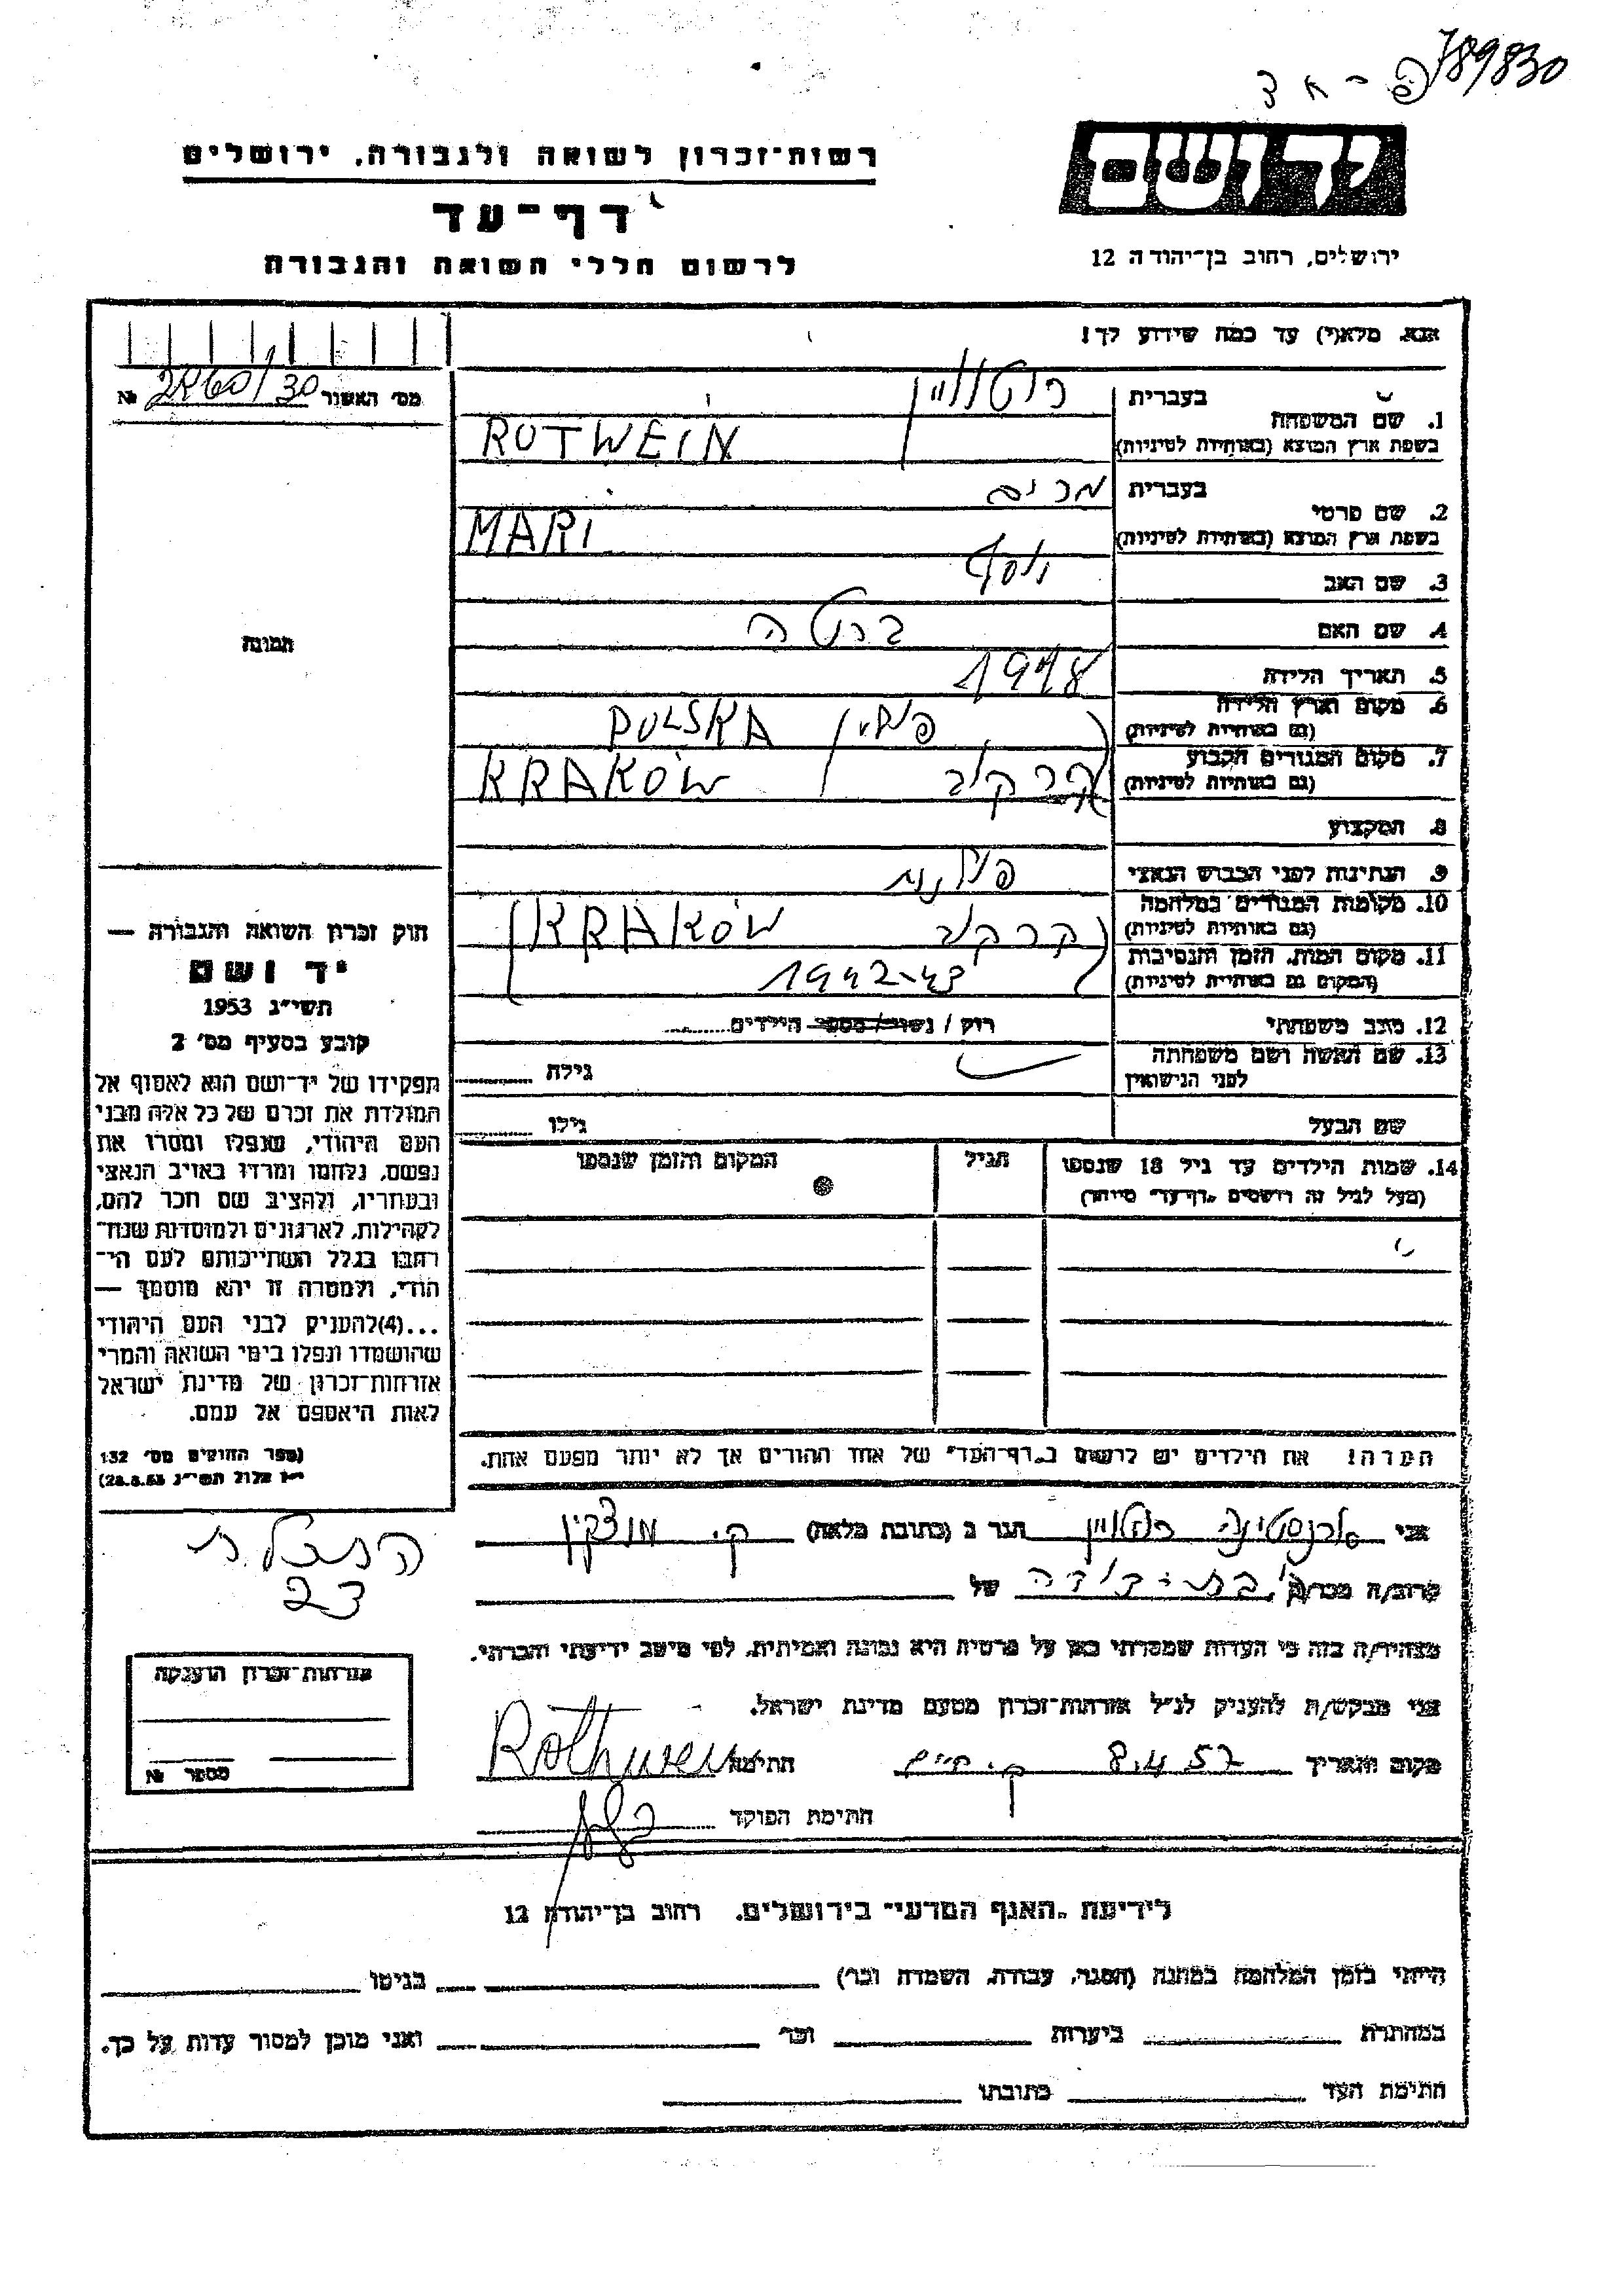 789830
יד ושם
ירושלים, רחוב בן־יהודה 12
רשות־זכרון לשואה ולגבורה, ירושלים
דף־עד
לרשום חללי השואה והגבורה
אנא, מלא(י) עד כמה שידוע לך!
מס׳ האשור 2860/30 №
1. שם המשפחה
בעברית רוטוויין
בשפת ארץ המוצא (באותיות לטיניות) ROTWEIN
2. שם פרטי
בעברית מרים
בשפת ארץ המוצא (באותיות לטיניות) MARI
3. שם האב יוסף
4. שם האם ברטה
5. תאריך הלידה 1918
6. מקום וארץ הלידה
(גם באותיות לטיניות) פולין POLSKA
7. מקום המגורים הקבוע
(גם באותיות לטיניות) קרקוב KRAKÓW
8. המקצוע
9. הנתינות לפני הכבוש הנאצי פולנית
10. מקומות המגורים במלחמה
(גם באותיות לטיניות) קרקוב KRAKÓW
11. מקום המות, הזמן והנסיבות
(המקום גם באותיות לטיניות) 1942-43
12. מצב משפחתי רוק / נשוי / מספר הילדים
13. שם האשה ושם משפחתה
לפני הנישואין גילה
שם הבעל גילו
14. שמות הילדים עד גיל 18 שנספו הגיל המקום והזמן שנספו
(מעל לגיל זה רושמים "דף־עד" מיוחד)
הערה! את הילדים יש לרשום ב"דף־העד" של אחד ההורים אך לא יותר מפעם אחת.
תמונה
חוק זכרון השואה והגבורה —
יד ושם
תשי״ג 1953
קובע בסעיף מס׳ 2
תפקידו של יד־ושם הוא לאסוף אל
המולדת את זכרם של כל אלה מבני
העם היהודי, שנפלו ומסרו את
נפשם, נלחמו ומרדו באויב הנאצי
ובעוזריו, ולהציב שם וזכר להם,
לקהילות, לארגונים ולמוסדות שנח־
רבו בגלל השתייכותם לעם הי־
הודי, ולמטרה זו יהא מוסמך —
...(4)להעניק לבני העם היהודי
שהושמדו ונפלו בימי השואה והמרי
אזרחות־זכרון של מדינת ישראל
לאות היאספם אל עמם.
(ספר החוקים מס׳ 132
י״ז אלול תשי״ג 28.8.53)
אני ארנסטינה רוטוויין הגר ב (כתובת מלאה) ק. מוצקין
23
קרוב/ה מכר/ה של
מצהיר/ה בזה כי העדות שמסרתי כאן על פרטיה היא נכונה ואמיתית, לפי מיטב ידיעתי והכרתי.
אני מבקש/ת להעניק לנ״ל אזרחות־זכרון מטעם מדינת ישראל.
מקום ותאריך 8.4.57 ק. חיים חתימה Rothwein
חתימת הפוקד
אזרחות־זכרון הוענקה
מספר №
לידיעת "האגף המדעי" בירושלים, רחוב בן־יהודה 12
הייתי בזמן המלחמה במחנה (הסגר, עבודה, השמדה וכו׳) בגיטו
במחתרת ביערות וכו׳ ואני מוכן למסור עדות על כך.
חתימת העד כתובתו